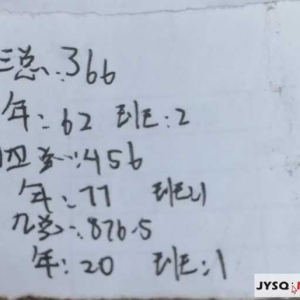 三总:366
年:62 班:2
四总:456
年:77 班:1
九总:876.5
年:20 班:1
JYSQ